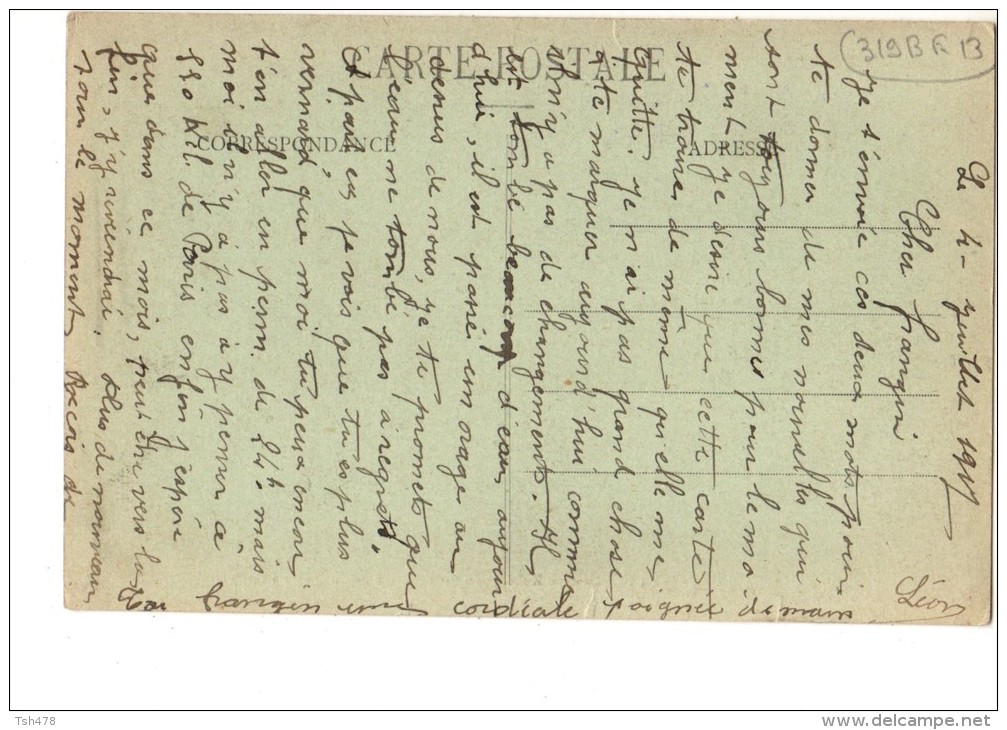 CARTE POSTALE
CORRESPONDANCE
ADRESSE
319B E 13
Le 4 - Juillet 191
Cher frangin
Je t'envoie ces deux mots pour
te donner de mes nouvelles qui
sont toujours bonnes pour le mo
ment, je désire que cette carte
te trouve de même qu'elle me
quitte. Je n'ai pas grand chose
a te marquer aujourd'hui comme
il n'y a pas de changement. Il
est tombé beaucoup d'eau aujour
d'hui, il est passé un orage au
dessus de nous, je te promets que
l'eau ne tombé pas à regrets.
A part ça je vois que tu es plus
vernard que moi tu peux encore
t'en aller en perm. de 24h. mais
moi il n'y a pas à y penser à
550 Kil. de Paris enfin j'espère
que dans ce mois, peut être vers la
fin, j'y reviendrai. Plus de nouveau
pour le moment. Recois de
ton frangin une cordiale poignée de mains
Léon
Tsh478
www.delcampe.net